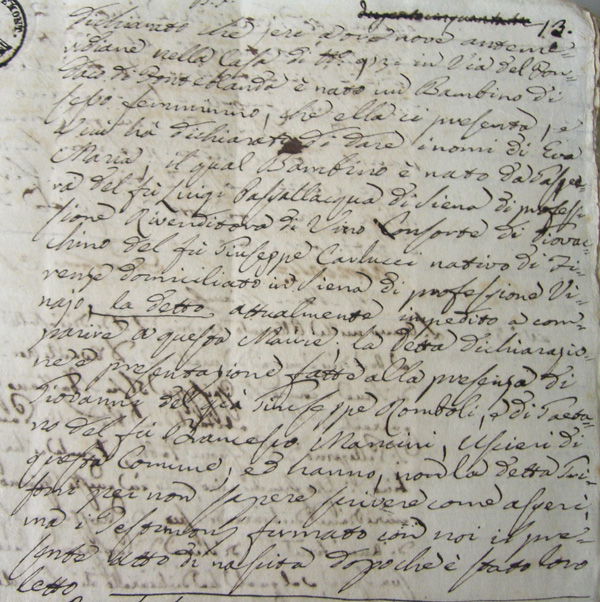 13.
dichiarato che jeri a ore nove antime=
ridiane nella Casa di N° 932 in Via del Fon=
daco di Ponte è nato un Bambino di
sesso femminino, che ella ci presenta, e
cui ha dichiarato di dare i nomi di Eva
Maria, il qual Bambino è nato da
del fù Luigi Passallacqua di Siena di profes=
sione Rivenditora di Vino Consorte di Giovac=
chino del fù Giuseppe Carlucci nativo di Fi=
renze domiciliato in Siena di professione Vi=
najo, la detto attualmente impedito a com=
parire a questa Mairie; la detta Dichiarazio=
ne e presentazione fatte alla presenza di
Giovanni del fù Giuseppe Romboli, e di Gaeta=
no del fù Francesco Mancini, Uscieri di
questa Comune, ed hanno, non la detta
per non sapere scrivere come asserì,
ma i Testimonj firmato con noi il pre=
sente atto di nascita dopo che è stato loro
letto